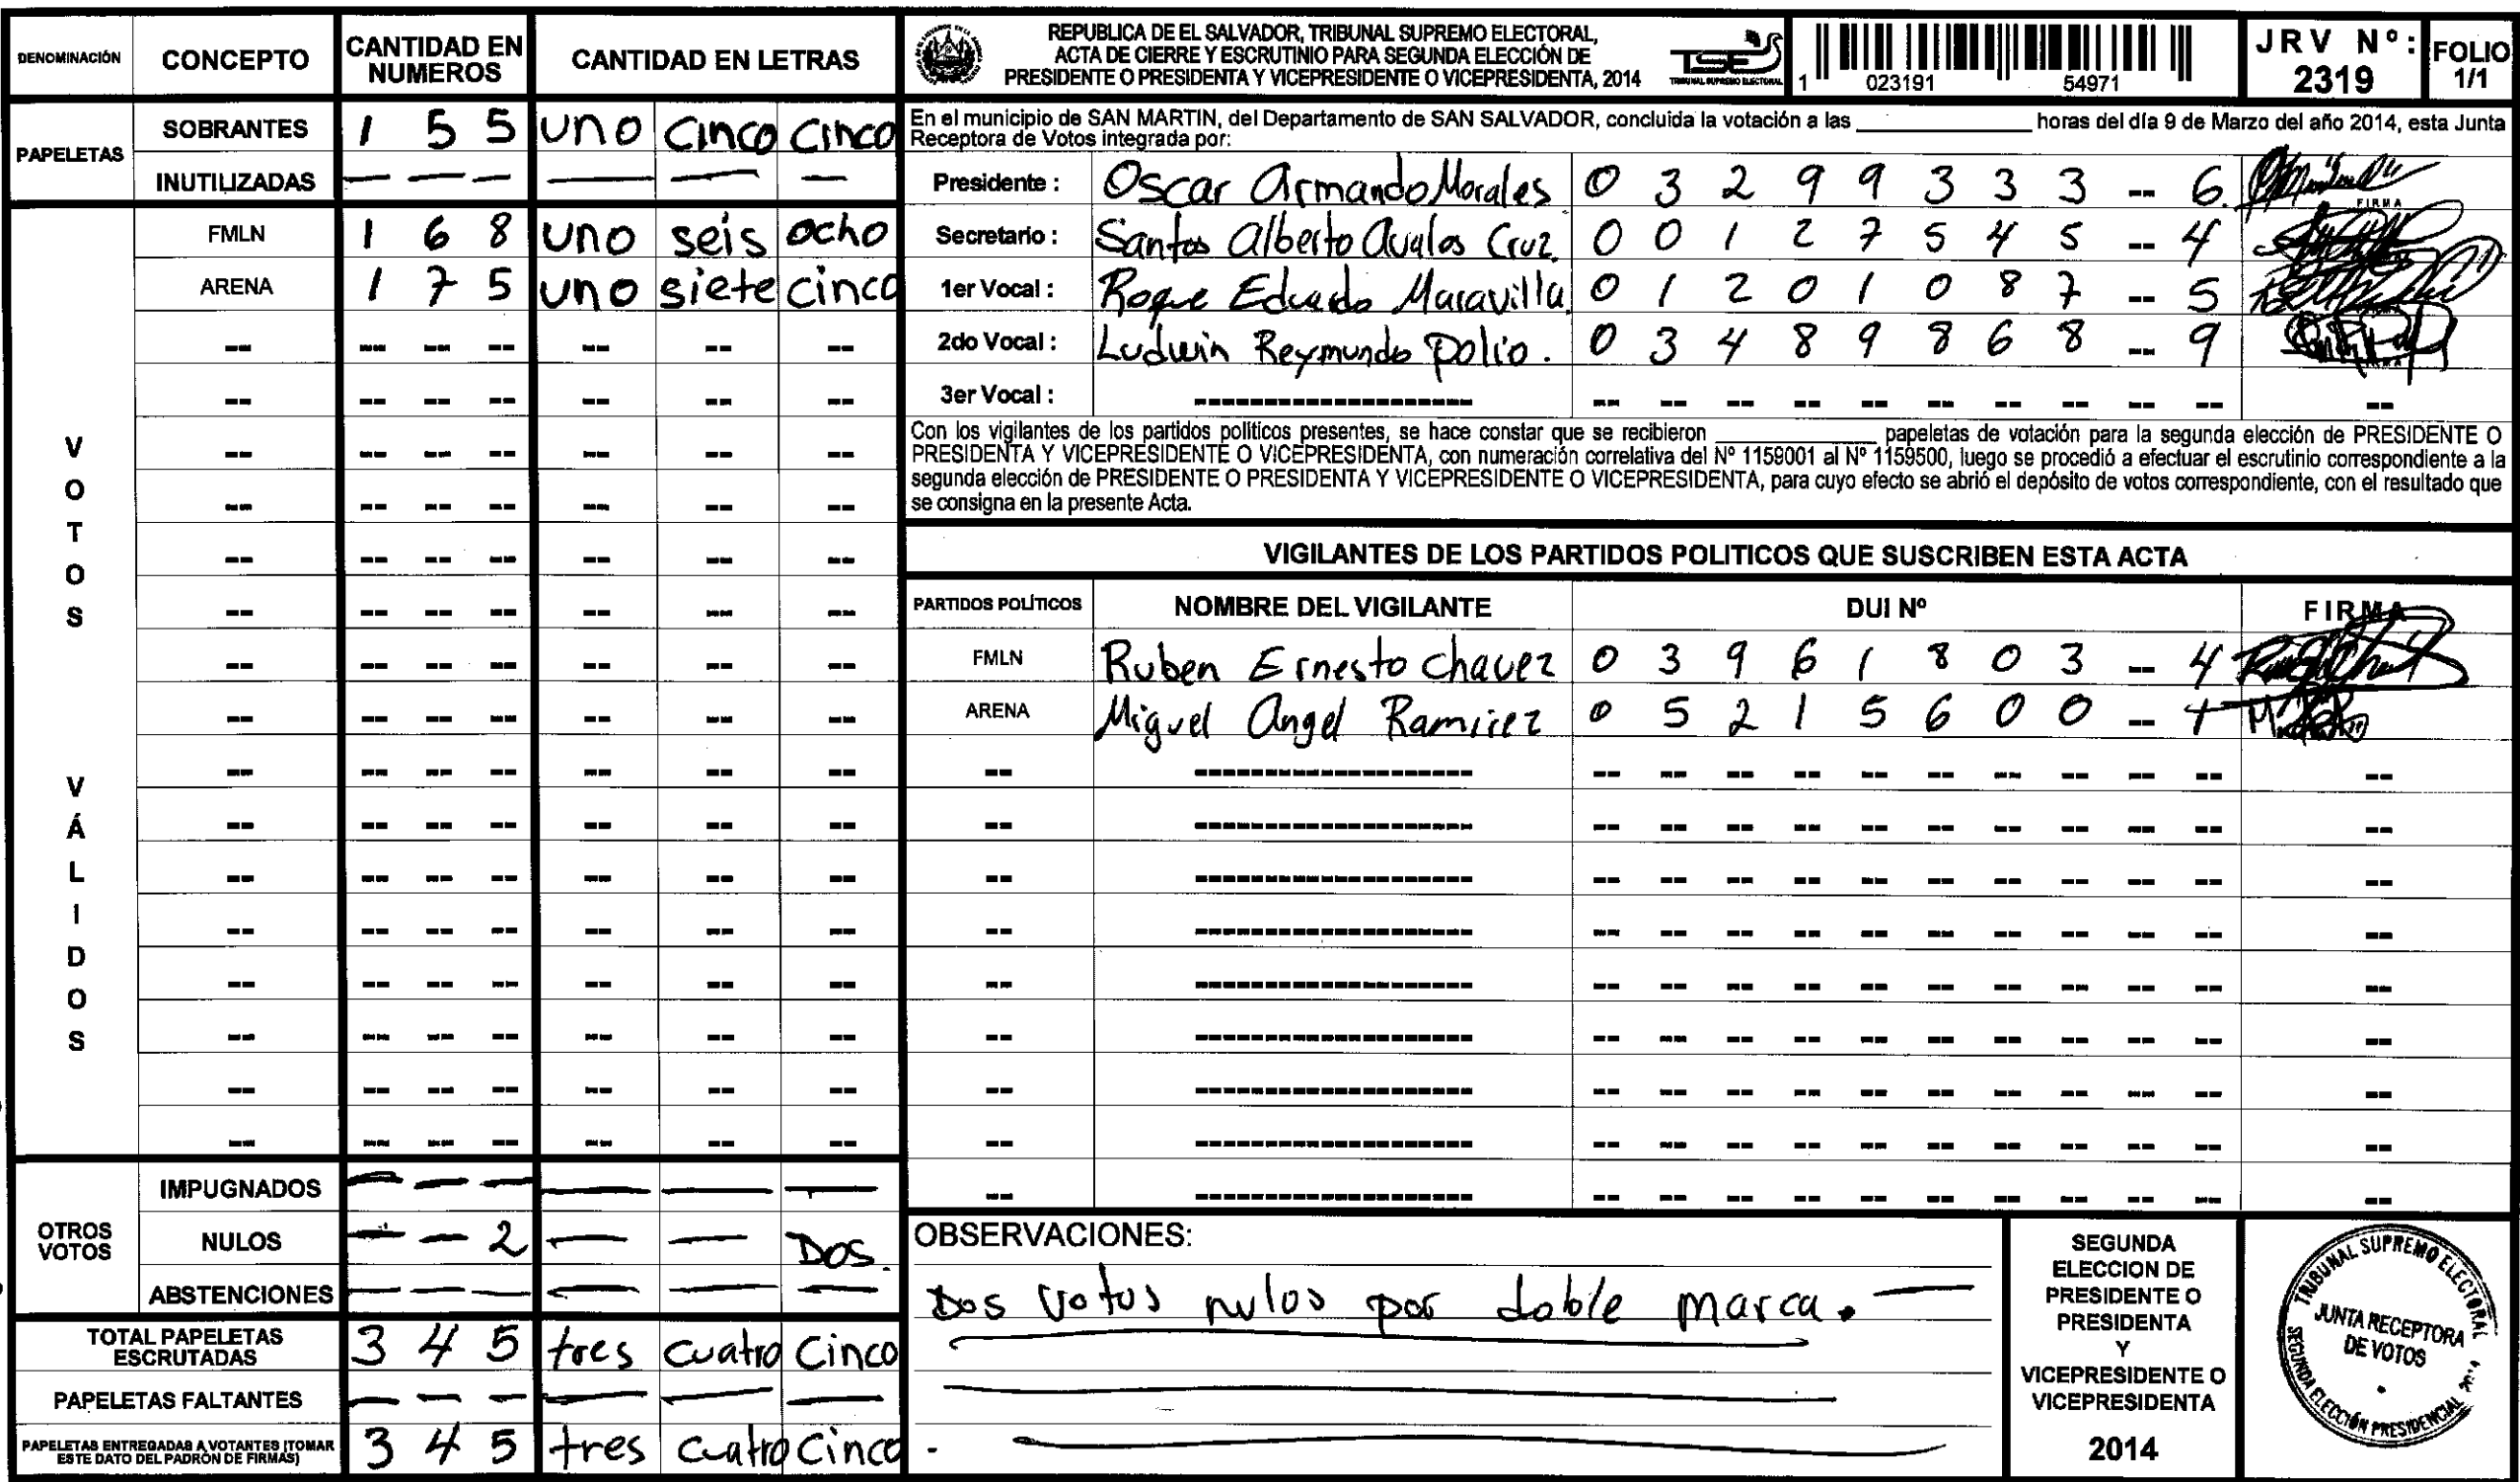 DENOMINACIÓN CONCEPTO CANTIDAD EN NUMEROS CANTIDAD EN LETRAS
PAPELETAS
SOBRANTES 1 5 5 uno cinco cinco
INUTILIZADAS — — — — — —
VOTOS VÁLIDOS
FMLN 1 6 8 uno seis ocho
ARENA 1 7 5 uno siete cinco
OTROS VOTOS
IMPUGNADOS — — — — — —
NULOS — — 2 — — Dos.
ABSTENCIONES — — — — — —
TOTAL PAPELETAS ESCRUTADAS 3 4 5 tres cuatro cinco
PAPELETAS FALTANTES — — — — — —
PAPELETAS ENTREGADAS A VOTANTES (TOMAR ESTE DATO DEL PADRÓN DE FIRMAS) 3 4 5 tres cuatro cinco
REPUBLICA DE EL SALVADOR, TRIBUNAL SUPREMO ELECTORAL,
ACTA DE CIERRE Y ESCRUTINIO PARA SEGUNDA ELECCIÓN DE
PRESIDENTE O PRESIDENTA Y VICEPRESIDENTE O VICEPRESIDENTA, 2014
TSE
TRIBUNAL SUPREMO ELECTORAL
1 023191 54971
JRV Nº: 2319
FOLIO 1/1
En el municipio de SAN MARTIN, del Departamento de SAN SALVADOR, concluida la votación a las ____ horas del día 9 de Marzo del año 2014, esta Junta
Receptora de Votos integrada por:
Presidente : Oscar Armando Morales 0 3 2 9 9 3 3 3 -- 6
FIRMA
Secretario : Santos Alberto Avalos Cruz 0 0 1 2 7 5 4 5 -- 4
1er Vocal : Roque Eduardo Maravilla 0 1 2 0 1 0 8 7 -- 5
2do Vocal : Ludwin Reymundo Polio. 0 3 4 8 9 8 6 8 -- 9
3er Vocal : -- -- -- -- -- -- -- -- -- --
Con los vigilantes de los partidos políticos presentes, se hace constar que se recibieron ____ papeletas de votación para la segunda elección de PRESIDENTE O
PRESIDENTA Y VICEPRESIDENTE O VICEPRESIDENTA, con numeración correlativa del Nº 1159001 al Nº 1159500, luego se procedió a efectuar el escrutinio correspondiente a la
segunda elección de PRESIDENTE O PRESIDENTA Y VICEPRESIDENTE O VICEPRESIDENTA, para cuyo efecto se abrió el depósito de votos correspondiente, con el resultado que
se consigna en la presente Acta.
VIGILANTES DE LOS PARTIDOS POLITICOS QUE SUSCRIBEN ESTA ACTA
PARTIDOS POLÍTICOS NOMBRE DEL VIGILANTE DUI Nº FIRMA
FMLN Ruben Ernesto Chavez 0 3 9 6 1 8 0 3 -- 4
ARENA Miguel Angel Ramirez 0 5 2 1 5 6 0 0 --
OBSERVACIONES:
Dos votos nulos por doble marca.
SEGUNDA
ELECCION DE
PRESIDENTE O
PRESIDENTA
Y
VICEPRESIDENTE O
VICEPRESIDENTA
2014
TRIBUNAL SUPREMO ELECTORAL
JUNTA RECEPTORA
DE VOTOS
SEGUNDA ELECCIÓN PRESIDENCIAL